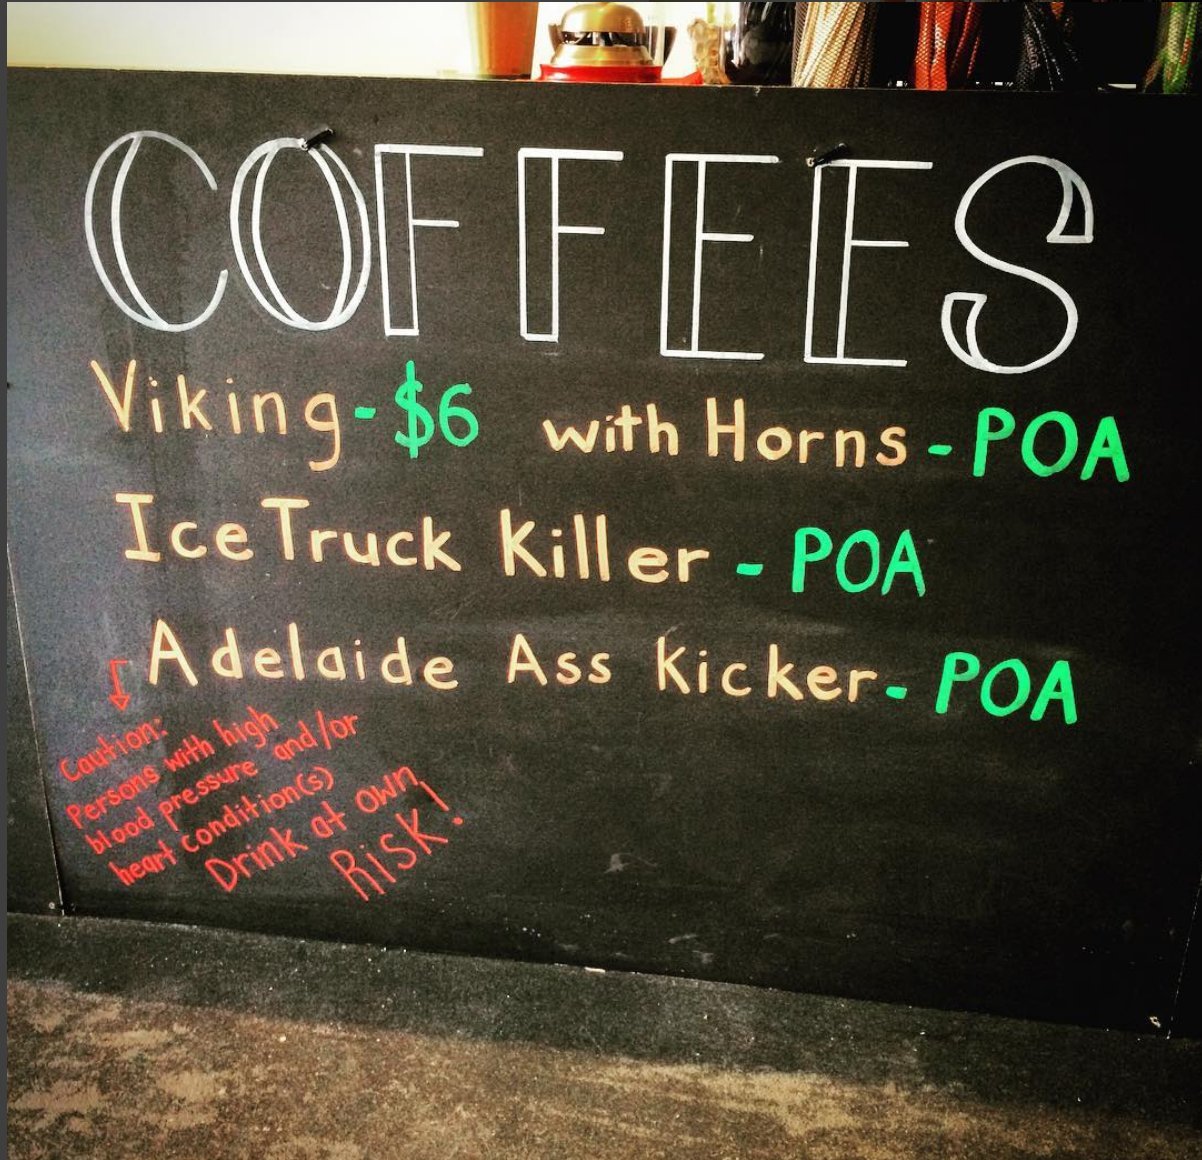 COFFEES
Viking-$6 with Horns-POA
Ice Truck Killer-POA
Adelaide Ass Kicker-POA
Caution:
Persons with high
blood pressure and/or
heart condition(s)
Drink at own
RiSK!